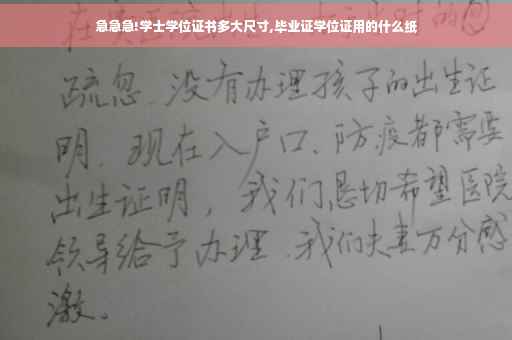 急急急!学士学位证书多大尺寸,毕业证学位证用的什么纸
疏忽.没有办理孩子的出生证
明.现在入户口、防疫都需要
出生证明，我们恳切希望医院
领导给予办理.我们夫妻万分感
激。